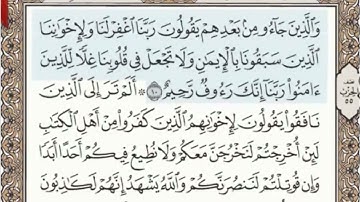 وَٱلَّذِينَ جَآءُو مِنۢ بَعْدِهِمْ يَقُولُونَ رَبَّنَا ٱغْفِرْ لَنَا وَلِإِخْوَٰنِنَا
ٱلَّذِينَ سَبَقُونَا بِٱلْإِيمَٰنِ وَلَا تَجْعَلْ فِى قُلُوبِنَا غِلًّا لِّلَّذِينَ
ءَامَنُوا۟ رَبَّنَآ إِنَّكَ رَءُوفٌ رَّحِيمٌ ١٠ ۞ أَلَمْ تَرَ إِلَى ٱلَّذِينَ
نَافَقُوا۟ يَقُولُونَ لِإِخْوَٰنِهِمُ ٱلَّذِينَ كَفَرُوا۟ مِنْ أَهْلِ ٱلْكِتَٰبِ
لَئِنْ أُخْرِجْتُمْ لَنَخْرُجَنَّ مَعَكُمْ وَلَا نُطِيعُ فِيكُمْ أَحَدًا أَبَدًا
وَإِن قُوتِلْتُمْ لَنَنصُرَنَّكُمْ وَٱللَّهُ يَشْهَدُ إِنَّهُمْ لَكَٰذِبُونَ